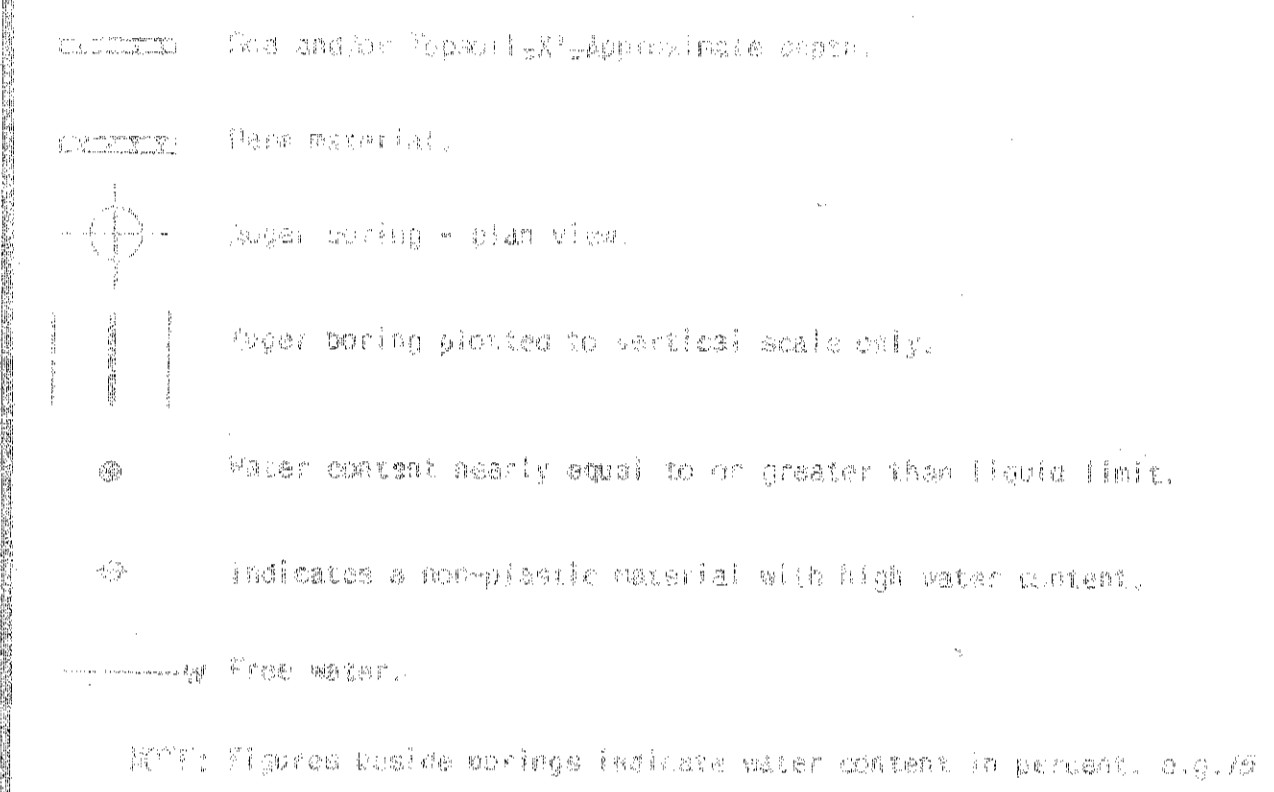 Sod and/or Topsoil-X'-Approximate depth.
material.
Auger boring - plan view.
Auger boring plotted to vertical scale only.
Water content nearly equal to or greater than liquid limit.
Indicates a non-plastic material with high water content.
W Free water.
NOTE: Figures beside borings indicate water content in percent. e.g.